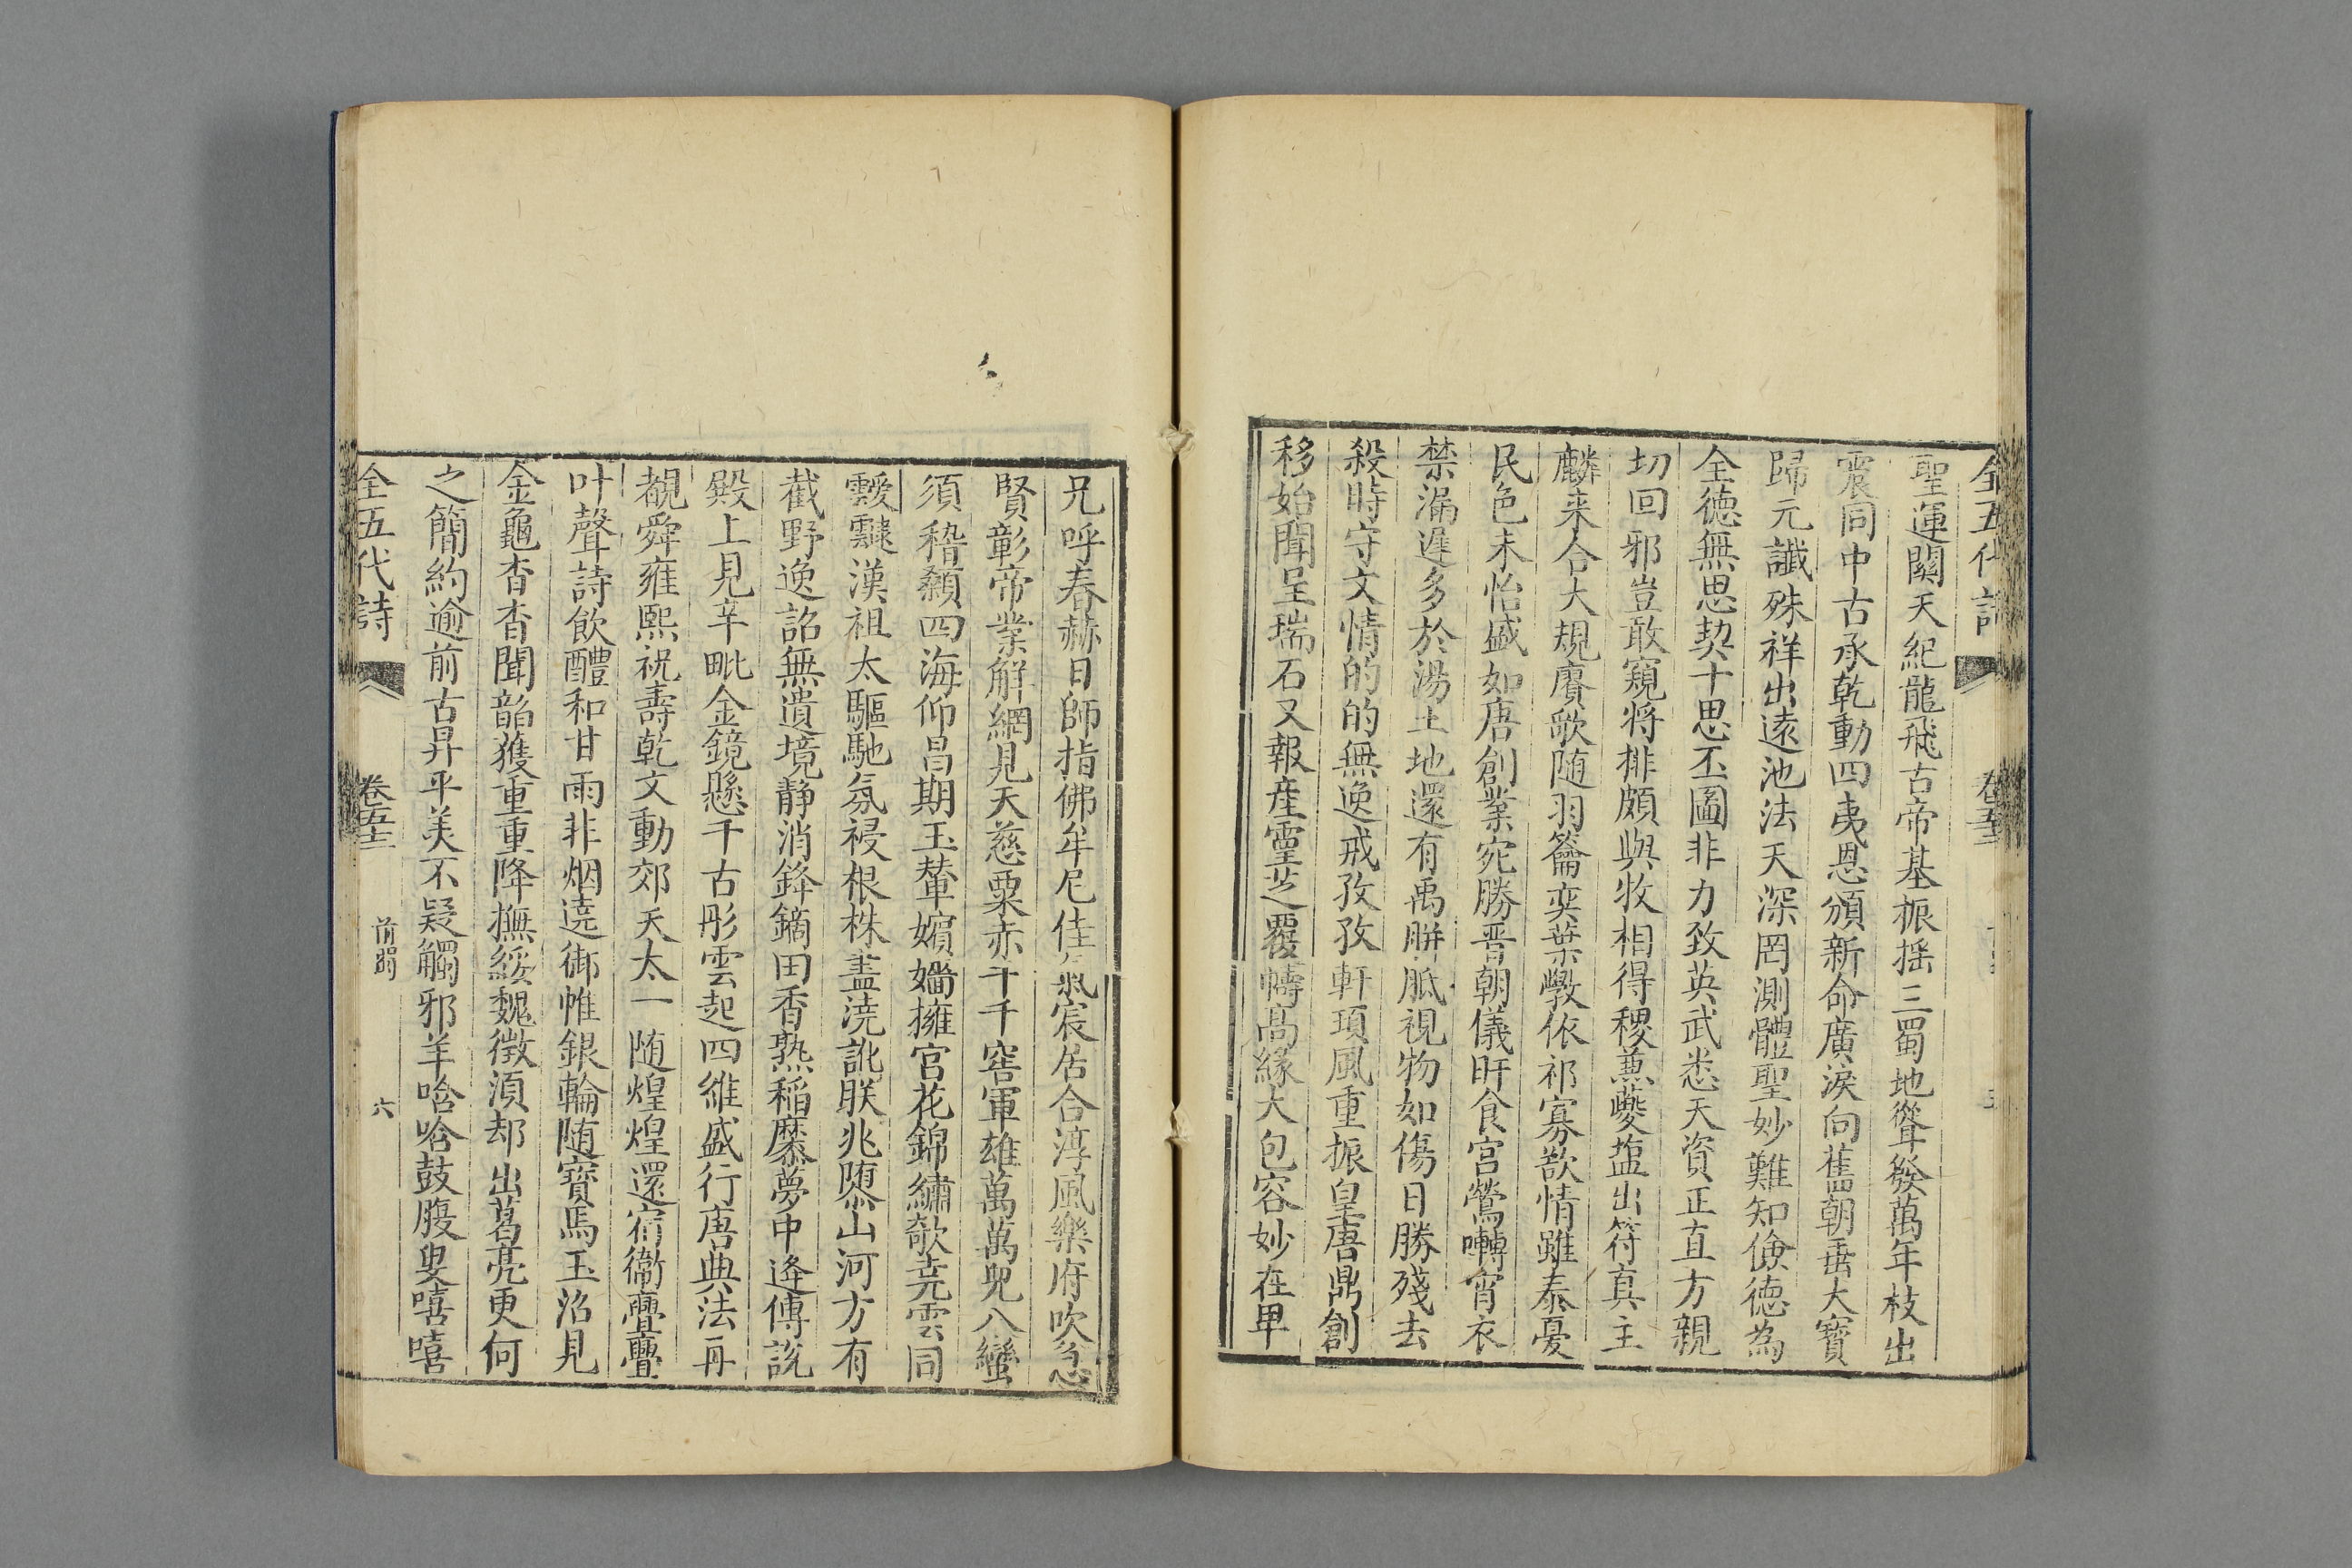 聖運闗天紀龍飛古帝基振摇三蜀地聳發萬年枝出
震同中古承乾動四夷恩頒新命廣淚向舊朝垂大寶
歸元讖殊祥出遠池法天深罔測體聖妙難知儉德為
全德無思契十思丕圖非力致英武悉天資正直方親
切回邪豈敢窺將排頗與牧相得稷兼夔塩出符真主
麟来合大規賡歌随羽籥奕葉斆依祁寡慾情雖泰憂
民色未怡盛如唐創業宛勝晋朝儀旰食宫鶯囀宵衣
禁漏遲多於湯土地還有禹胼胝視物如傷日勝殘去
殺時守文情的的無逸戒孜孜軒頊風重振皇唐鼎創
移始聞呈瑞石又報産靈芝覆幬髙緣大包容妙在卑
兄呼春赫日師指佛牟尼佳氣宸居合淳風樂府吹急
賢彰帝業解網見天慈粟赤千千窖軍雄萬萬兕八蠻
須稽顙四海仰昌期玉輦嬪嬙擁宫花錦繡欹堯雲同
靉靆漢祖太驅馳氛祲根株盡澆訛朕兆隳山河方有
截野逸詔無遺境静消鋒鏑田香熟稻䅽夢中逄傅說
殿上見辛毗金鏡懸千古彤雲起四維盛行唐典法再
覩舜雍熙祝壽乾文動郊天太一随煌煌還宿衞亹亹
叶聲詩飲醴和甘雨非烟遶御帷銀輪随寶馬玉沼見
金龜杳杳聞韶濩重重降撫綏魏徴須却出葛亮更何
之簡約逾前古昇平美不疑觸邪羊唅唅鼓腹叟嘻嘻
全五代詩 卷五十 前蜀 六